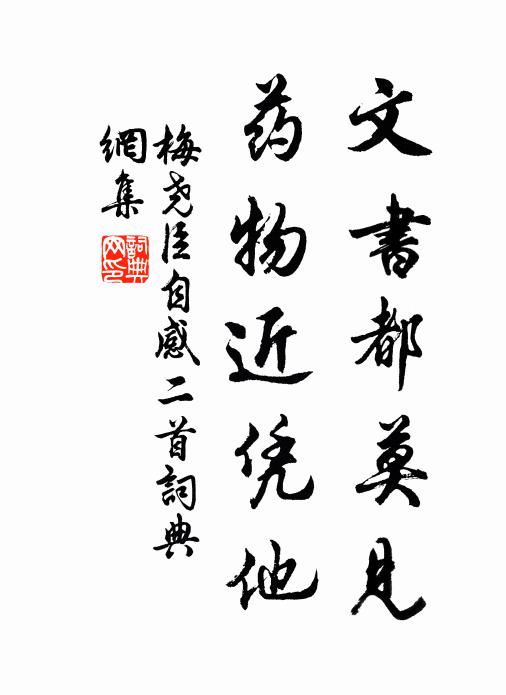 文書都莫見
药物近凭他
梅尧臣自感二首詞典
網集
詞典網印